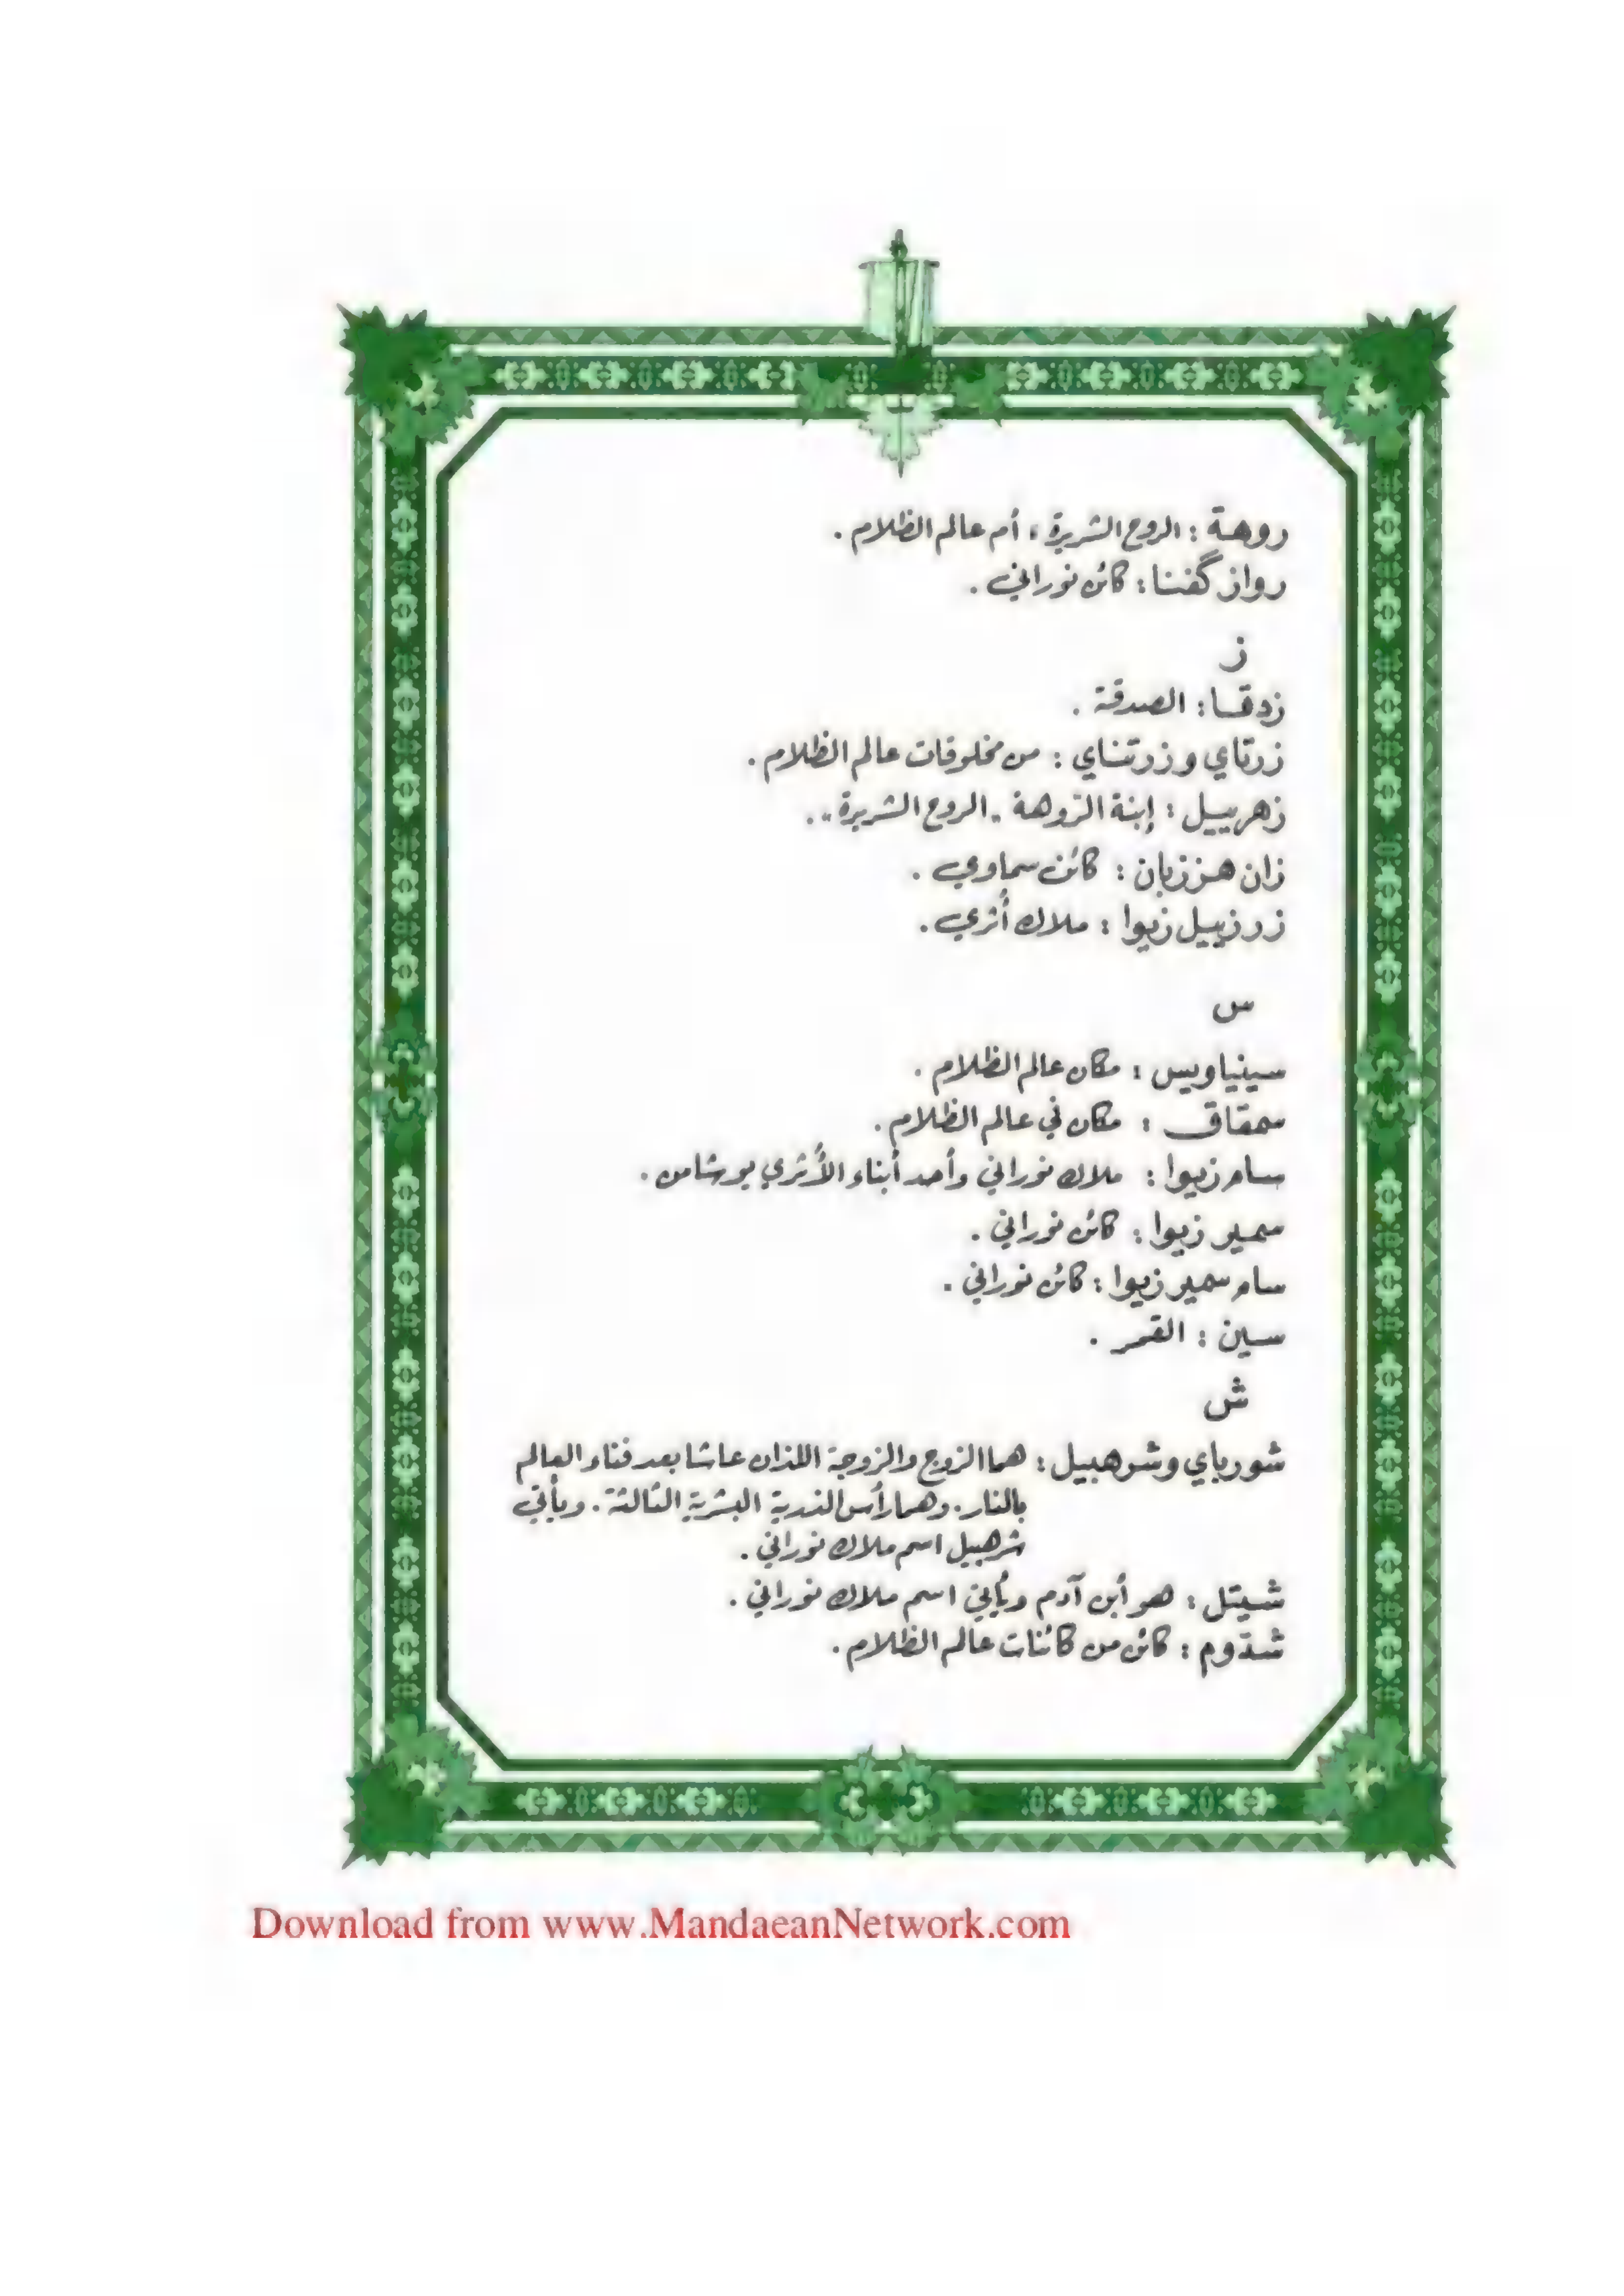 روهة : الروح الشريرة ، أم عالم الظلام .
رواز گفنا : كائن نوراني .
ز
زدقا : الصدقة .
زرتاي وزرتناي : من مخلوقات عالم الظلام .
زهرييل : إبنة الروهة "الروح الشريرة" .
زان هززبان : كائن سماوي .
زرزييل زيوا : ملاك أثري .
س
سينياويس : مكان عالم الظلام .
سمقاق : مكان في عالم الظلام .
سام زيوا : ملاك نوراني وأحد أبناء الأثري يوشامن .
سمير زيوا : كائن نوراني .
سام سمير زيوا : كائن نوراني .
سين : القمر .
ش
شورباي وشرهبيل : هما الزوج والزوجة اللذان عاشا بعد فناء العالم
بالنار . وهما رأس الذرية البشرية الثالثة . ويأتي
شرهبيل اسم ملاك نوراني .
شيتل : هو أبن آدم ويأتي اسم ملاك نوراني .
شدّوم : كائن من كائنات عالم الظلام .
Download from www.MandaeanNetwork.com